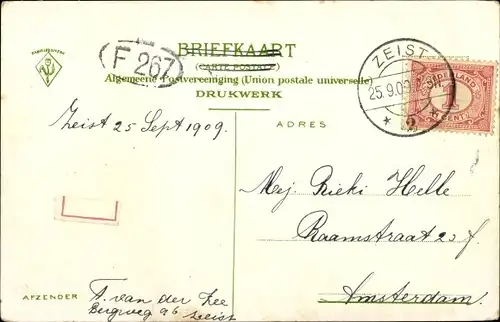 BRIEFKAART
(CARTE POSTALE)
Algemeene Postvereeniging (Union postale universelle)
DRUKWERK
F 267
ZEIST
25.9.09
2
NEDERLAND
1
CENT
Zeist 25 Sept 1909.
ADRES
Mej. Rieki Helle
Raamstraat 23 f.
Amsterdam.
AFZENDER
A. van der Zee
Bergweg 96
Zeist